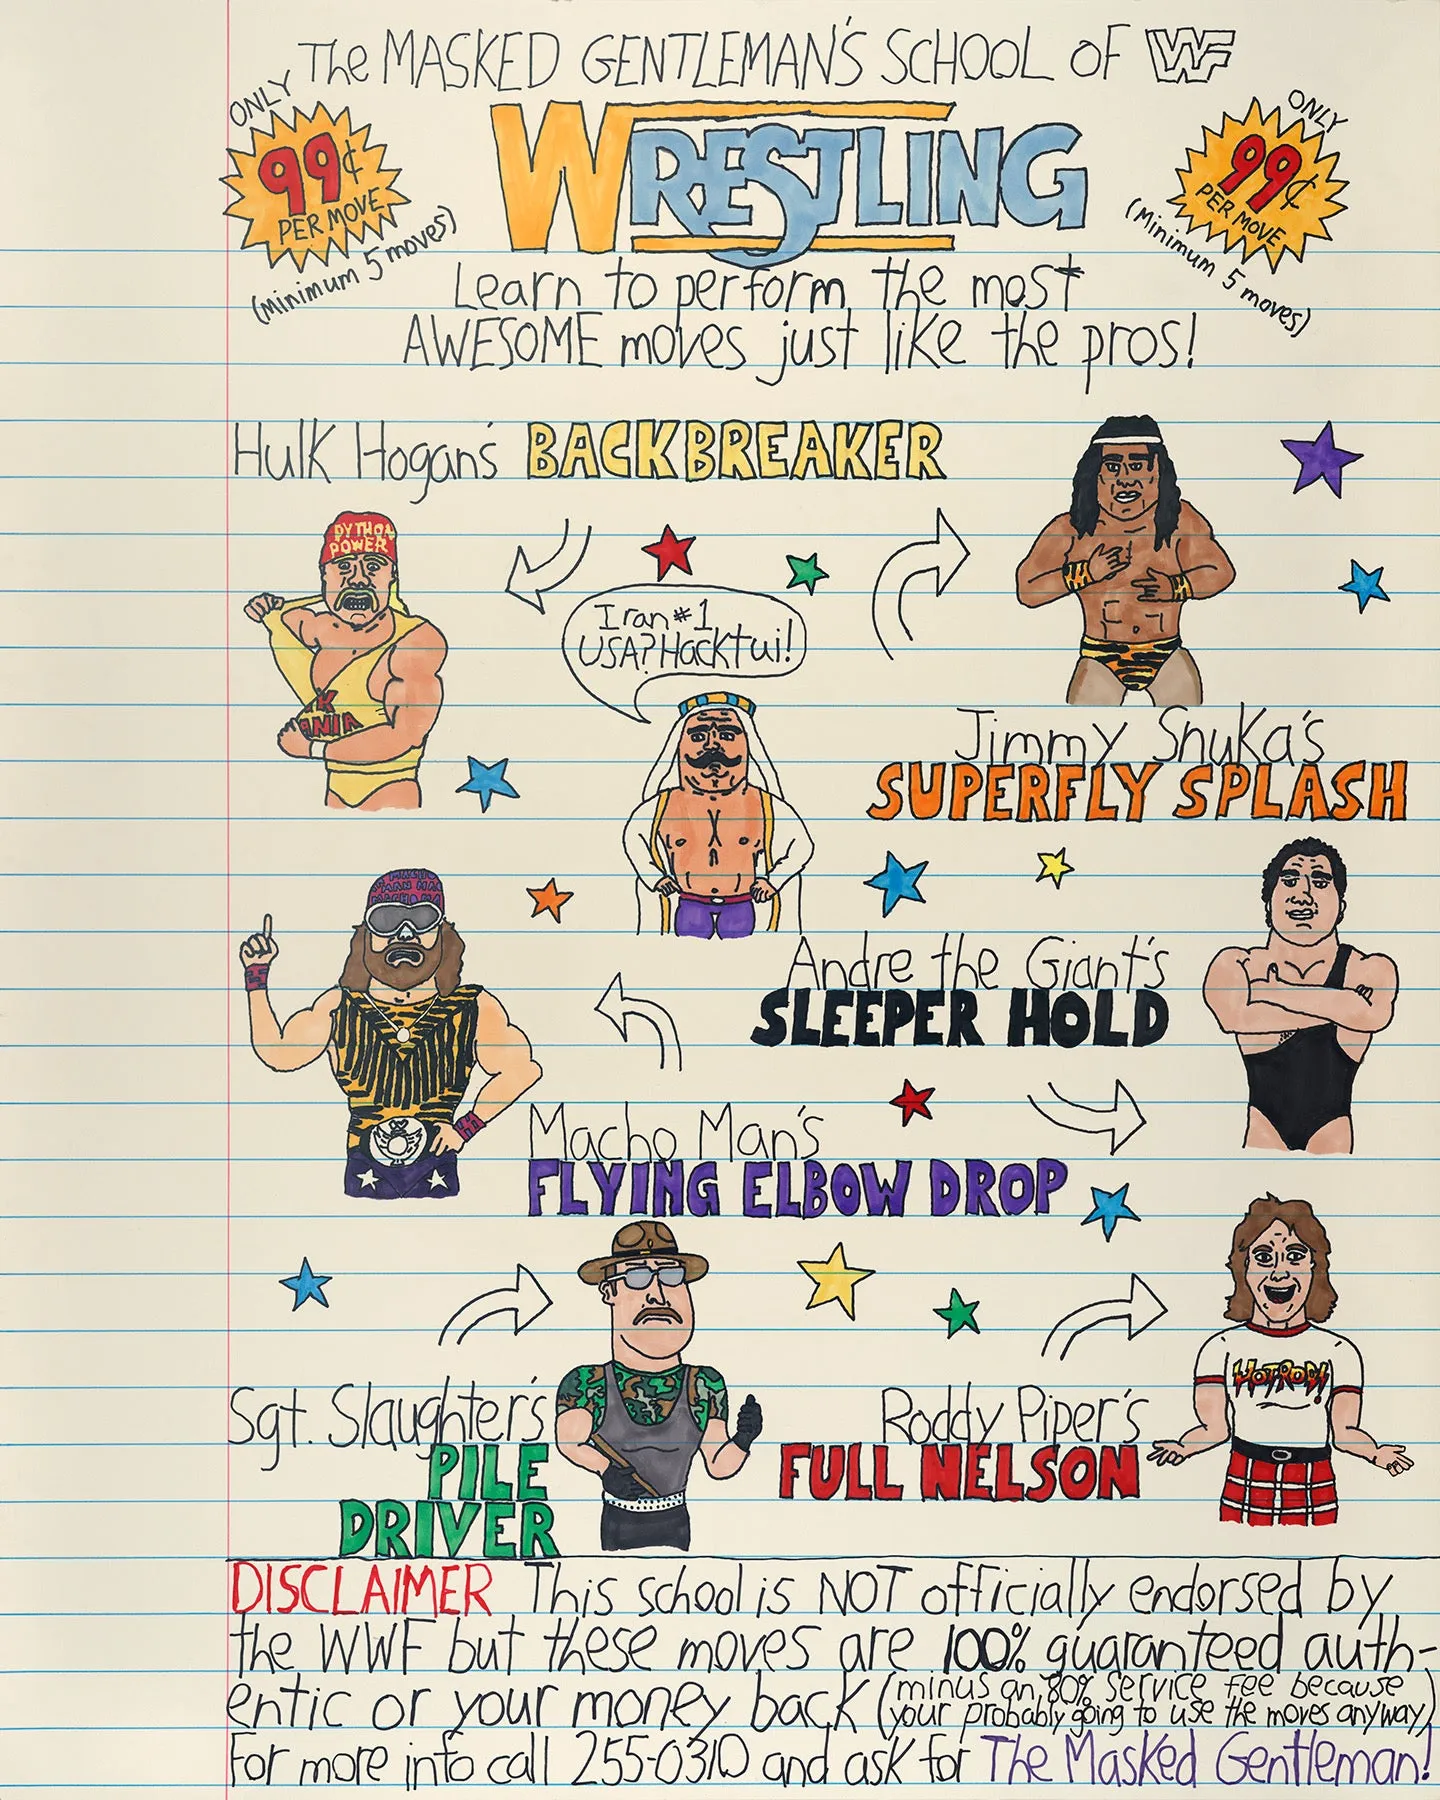 The MASKED GENTLEMAN'S SCHOOL OF WF
WRESTLING
ONLY
99¢
PER MOVE
(Minimum 5 moves)
ONLY
99¢
PER MOVE
(Minimum 5 moves)
Learn to perform the most
AWESOME moves just like the pros!
Hulk Hogan's BACKBREAKER
PYTHON
POWER
K
ANIA
Iran #1
USA? Hacktui!
Jimmy Snuka's
SUPERFLY SPLASH
MAN MAC
MACHO MA
Andre the Giant's
SLEEPER HOLD
Macho Man's
FLYING ELBOW DROP
Sgt. Slaughter's
PILE
DRIVER
Roddy Piper's
FULL NELSON
HOT ROD!
DISCLAIMER This school is NOT officially endorsed by
the WWF but these moves are 100% guaranteed auth-
entic or your money back (minus an 80% service fee because
your probably going to use the moves anyway)
For more info call 255-0310 and ask for The Masked Gentleman!